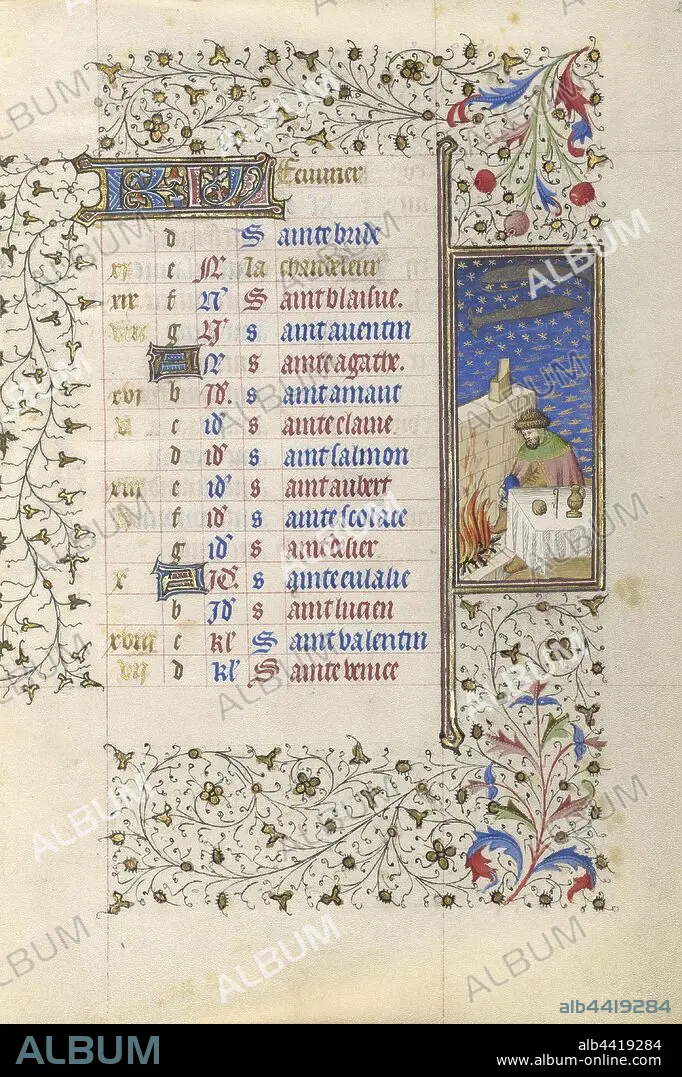 KL Feurier
d S aintebride
xi e N la chandeleur
xix f N S aint blaisue.
viii g N s aint auentin
A N s ainte agathe.
xvi b Id. s aint amant
v c id s ainte elaine.
d id s aint salmon
xiii e id s aint aubert
ii f id s ainte scolace
g id s aint elier.
x A Id. s ainte eulalie
b Id s aint lucien
xviii c kl S aint valentin
vii d kl S ainte venice
ALBUM
alb4419284
ALBUM
alb4419284
www.album-online.com